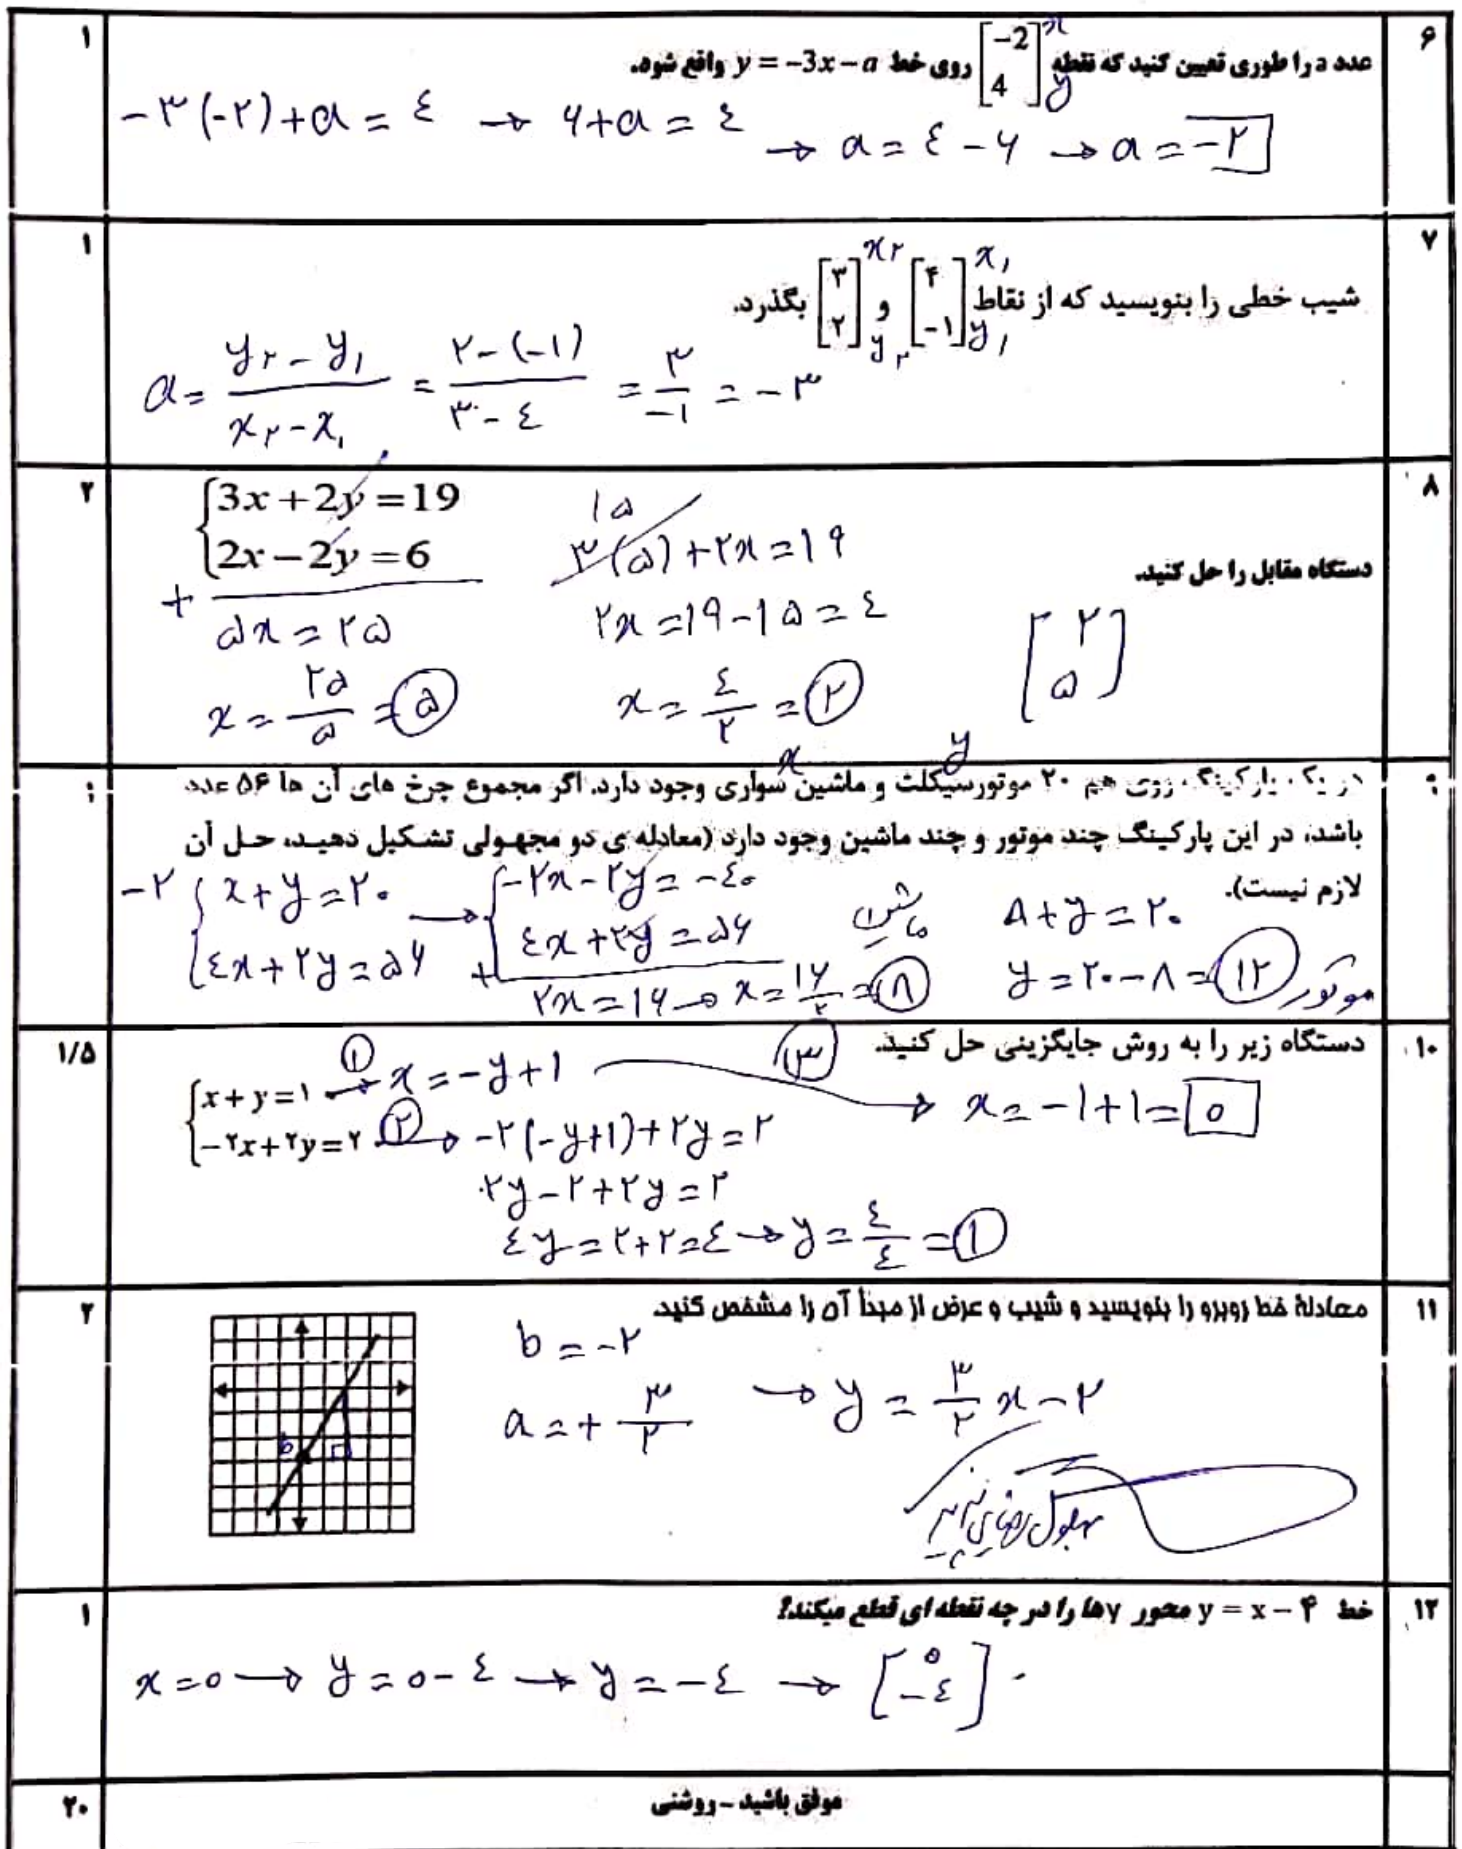 ۶ عدد a را طوری تعیین کنید که نقطه [-2 4] x y روی خط y = -3x - a واقع شود. ۱
-۳(-۲)+a = ٤ → ۶+a = ٤
→ a = ٤ - ۶ → a = -۲
۷ شیب خطی را بنویسید که از نقاط [۴ -۱] x۱ y۱ و [۳ ۲] x۲ y۲ بگذرد. ۱
a = (y۲ - y۱)/(x۲ - x۱) = (۲-(-۱))/(۳-٤) = ۳/-۱ = -۳
۸ دستگاه مقابل را حل کنید. ۲
3x + 2y = 19
2x - 2y = 6
+ ۵x = ۲۵
x = ۲۵/۵ = ۵
۱۵
۳(۵)+۲x = ۱۹
۲x = ۱۹-۱۵ = ٤
x = ٤/۲ = ۲
[۲ ۵]
x y
در یک پارکینگ روی هم ۲۰ موتورسیکلت و ماشین سواری وجود دارد. اگر مجموع چرخ های آن ها ۵۶ عدد
باشد، در این پارکینگ چند موتور و چند ماشین وجود دارد (معادله ی دو مجهولی تشکیل دهید، حل آن
لازم نیست).
-۲ { x+y = ۲۰ → { -۲x-۲y = -٤۰
٤x+۲y = ۵۶ + ٤x+۲y = ۵۶
۲x = ۱۶ → x = ۱۶/۲ = ۸ ماشین
۸+y = ۲۰
y = ۲۰-۸ = ۱۲ موتور
۱۰ دستگاه زیر را به روش جایگزینی حل کنید. ۱/۵
x + y = ۱ ① → x = -y+۱ ③ → x = -۱+۱ = ۰
-۲x + ۲y = ۲ ② → -۲(-y+۱)+۲y = ۲
۲y-۲+۲y = ۲
٤y = ۲+۲ = ٤ → y = ٤/٤ = ۱
۱۱ معادلهٔ خط روبرو را بنویسید و شیب و عرض از مبدأ آن را مشخص کنید. ۲
b
b = -۲
a = + ۳/۲ → y = ۳/۲ x - ۲
۱۲ خط y = x - ۴ محور yها را در چه نقطه ای قطع میکند؟ ۱
x = ۰ → y = ۰-٤ → y = -٤ → [۰ -٤]
موفق باشید - روشنی ۲۰